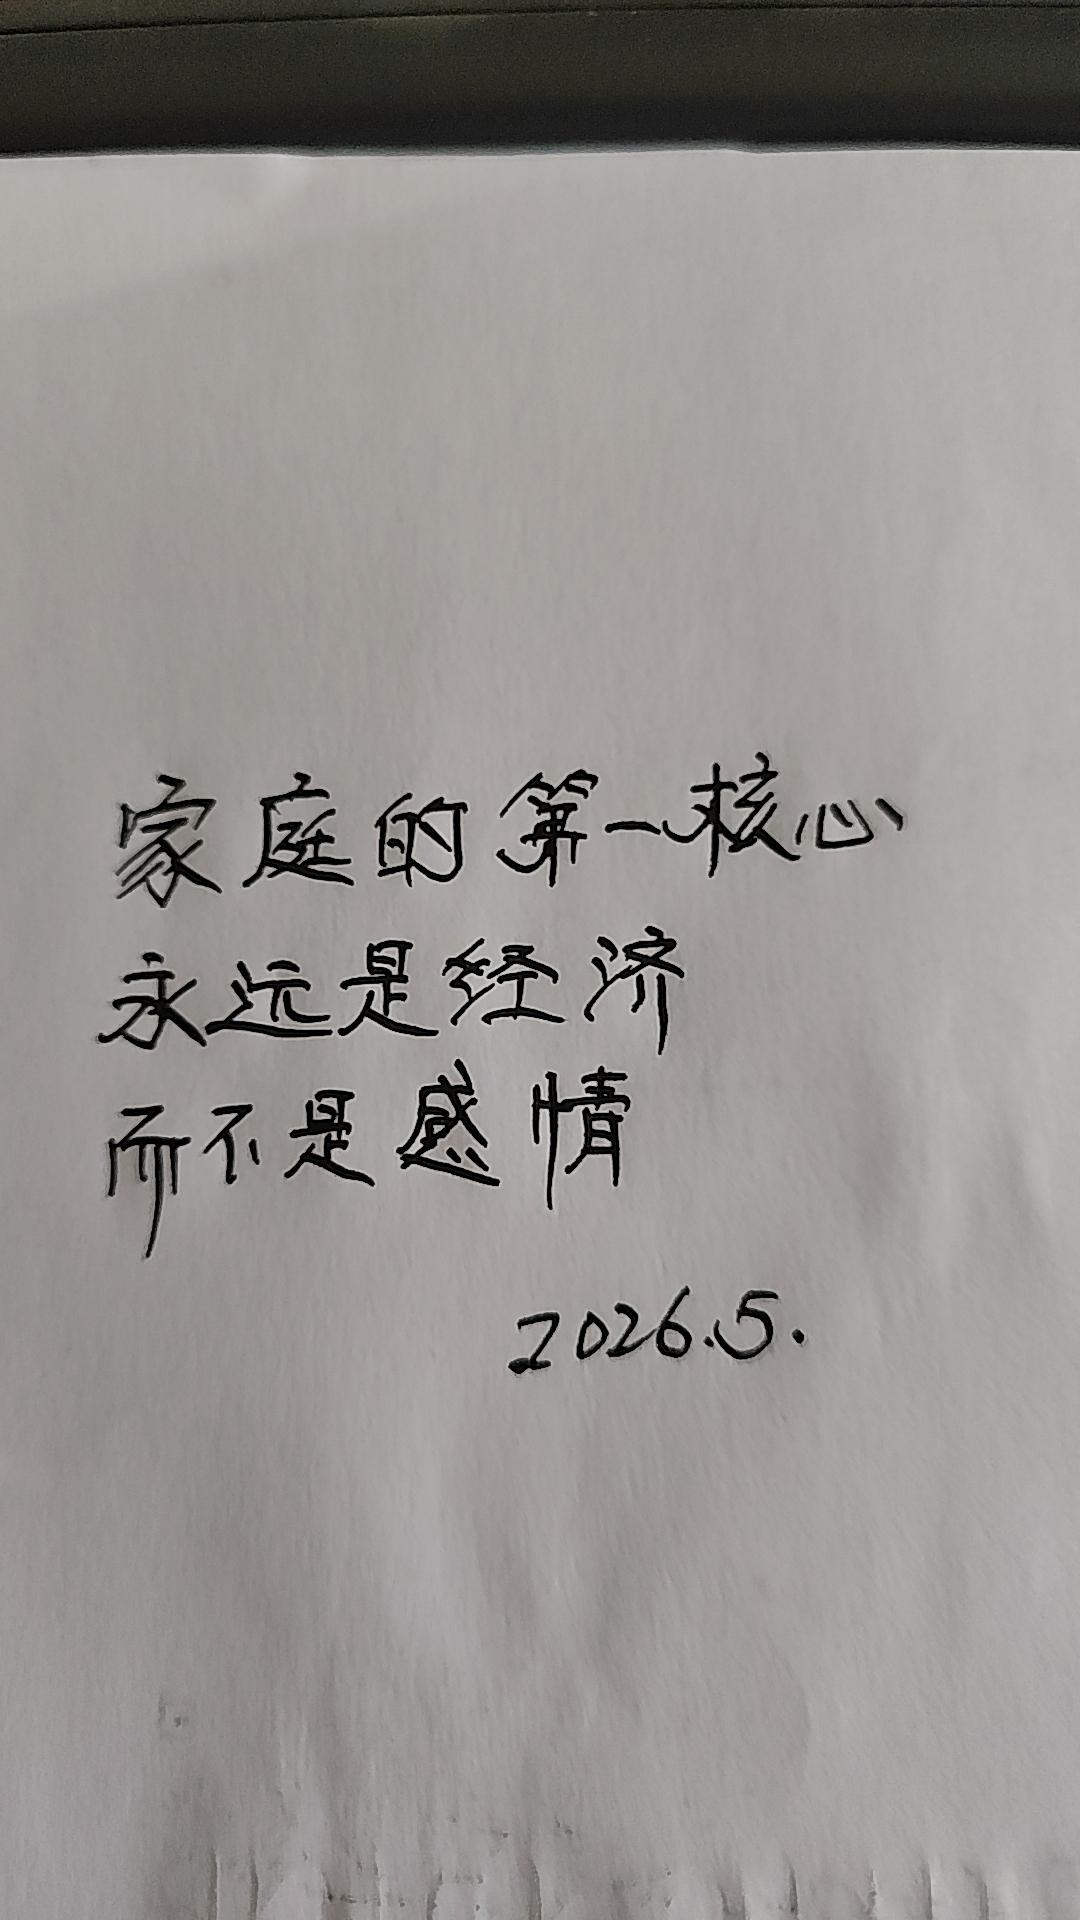 家庭的第一核心
永远是经济
而不是感情
2026.5.